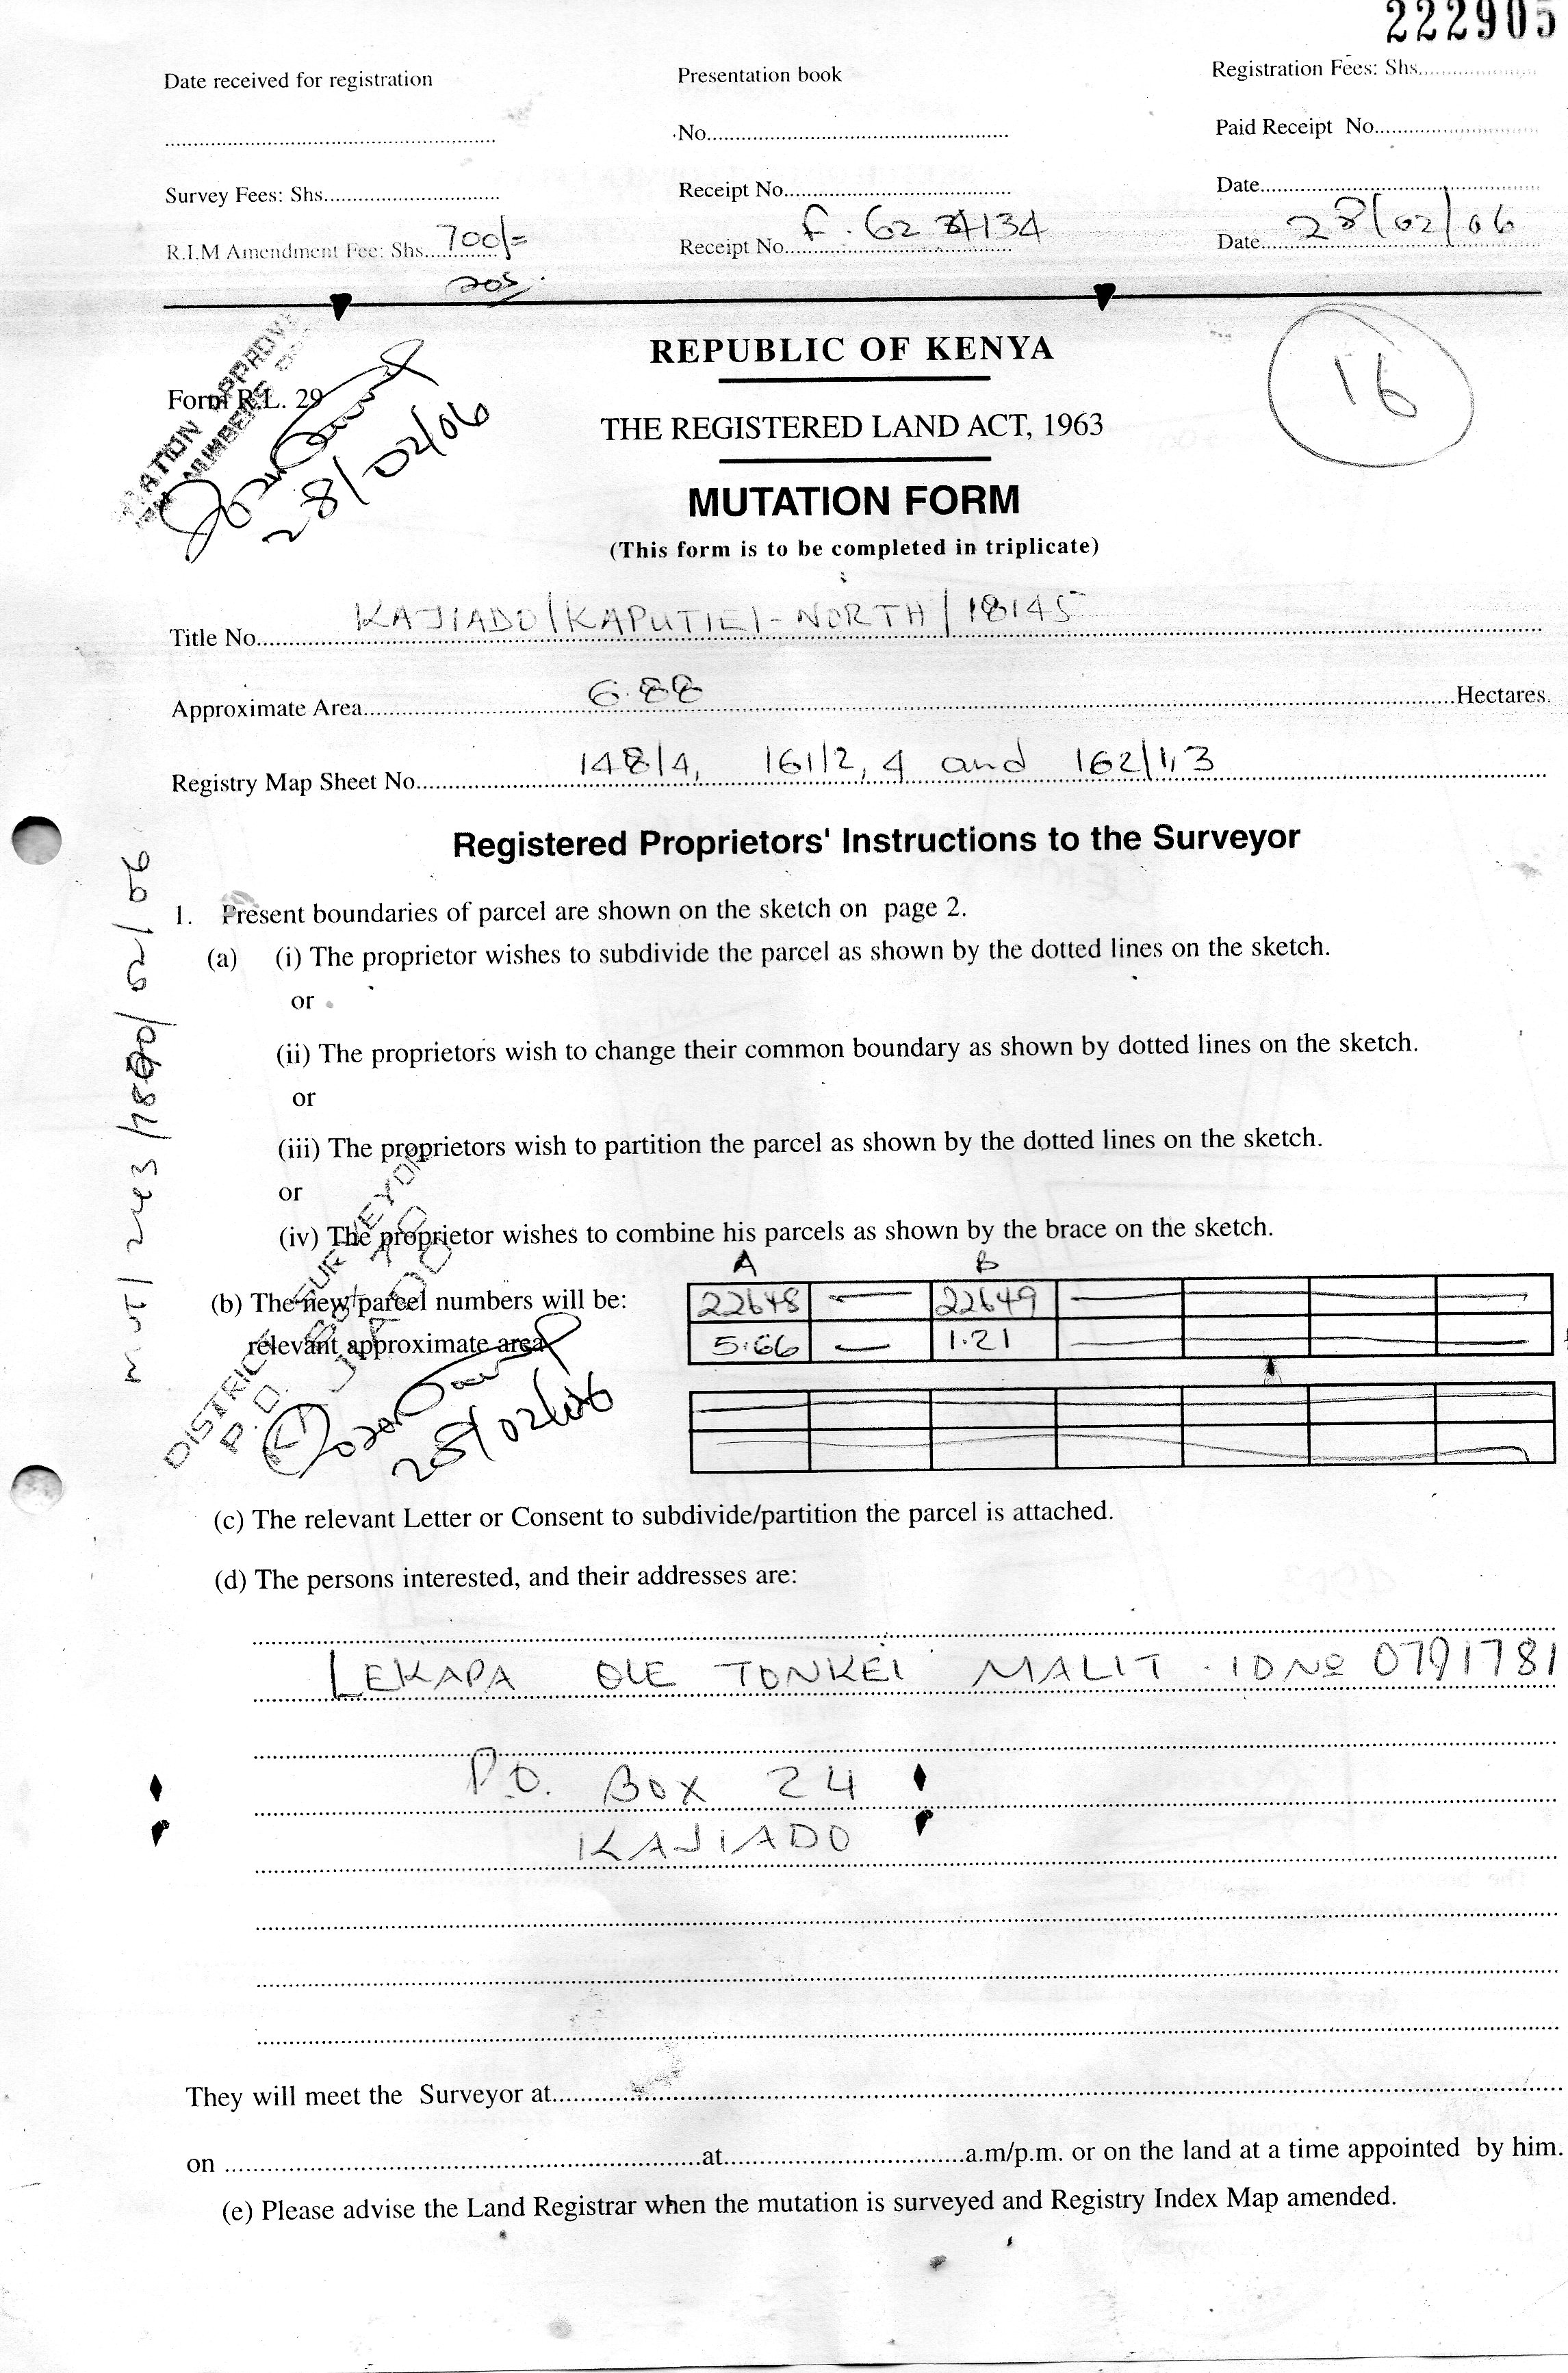 222905
Date received for registration
Presentation book
Registration Fees: Shs.
No.
Paid Receipt No.
Survey Fees: Shs.
Receipt No.
Date
R.I.M Amendment Fee: Shs. 700/=
Receipt No. F. 62 34134
Date 28/02/06
Form R.L. 29
28/02/06
REPUBLIC OF KENYA
16
THE REGISTERED LAND ACT, 1963
MUTATION FORM
(This form is to be completed in triplicate)
Title No. KAJIADO/KAPUTIEI-NORTH/18145
Approximate Area 6.88 Hectares.
Registry Map Sheet No. 148/4, 161/2,4 and 162/1,3
Registered Proprietors' Instructions to the Surveyor
1. Present boundaries of parcel are shown on the sketch on page 2.
(a) (i) The proprietor wishes to subdivide the parcel as shown by the dotted lines on the sketch.
or
(ii) The proprietors wish to change their common boundary as shown by dotted lines on the sketch.
or
(iii) The proprietors wish to partition the parcel as shown by the dotted lines on the sketch.
or
(iv) The proprietor wishes to combine his parcels as shown by the brace on the sketch.
A B
(b) The new parcel numbers will be: 22648 22649
relevant approximate area 5.66 1.21
DISTRICT SURVEYOR
KAJIADO
28/02/06
(c) The relevant Letter or Consent to subdivide/partition the parcel is attached.
(d) The persons interested, and their addresses are:
LEKAPA OLE TONKEI MALIT . ID No 0791781
P.O. BOX 24
KAJIADO
They will meet the Surveyor at
on at a.m/p.m. or on the land at a time appointed by him.
(e) Please advise the Land Registrar when the mutation is surveyed and Registry Index Map amended.